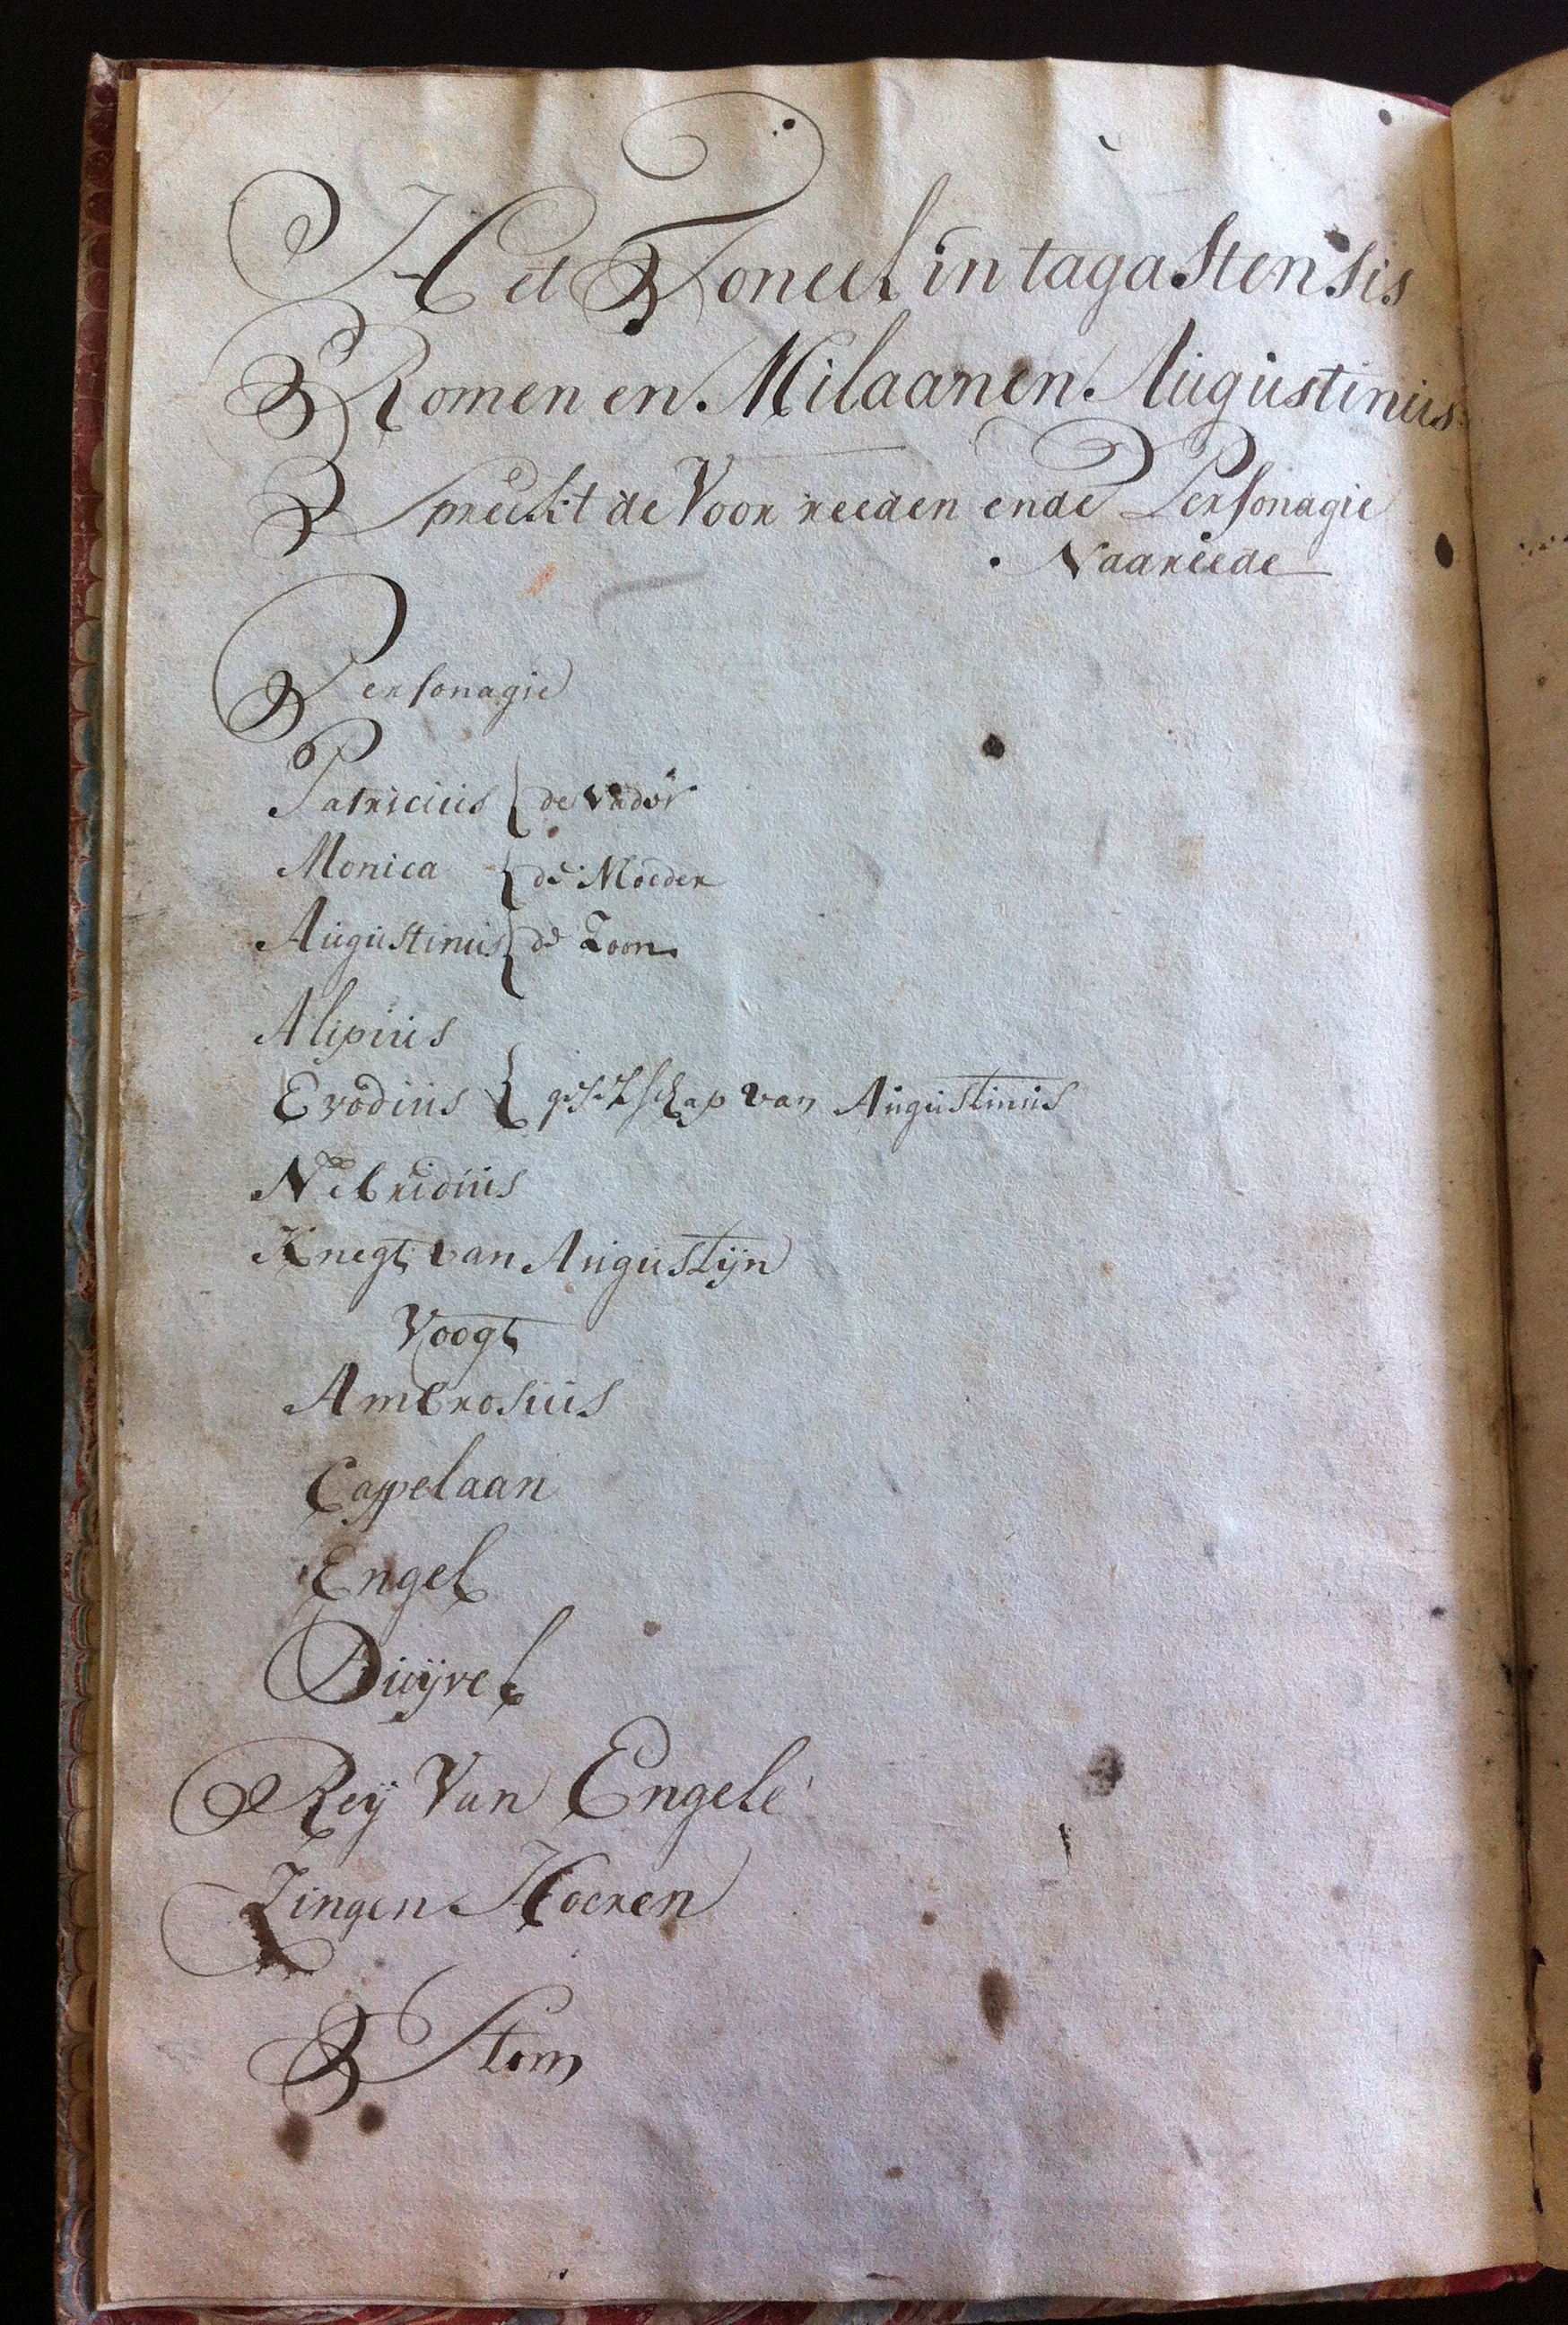 Het Toneel in tagastensis
Romen en Milaanen Augustinus
Spreekt de Voor reeden ende Personagie
Naareede
Personagie
Patricius { de vader
Monica { de Moeder
Augustinus { de Zoon
Alipius
Evodius { geselschap van Augustinus
Nebridius
Knegt van Augustijn
Voogt
Ambrosius
Cappelaan
Engel
Duijvel
Reij Van Engele
Zingen Hoeren
Stom